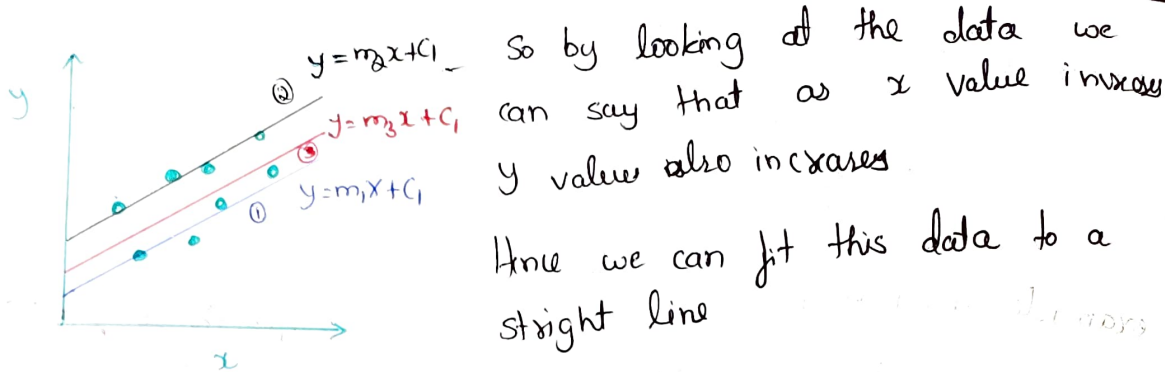 y
y = m2x+C1
②
y = m3x + C1
③
y = m1x + C1
①
x
So by looking at the data we
can say that as x value increases
y values also incrases
Hnce we can fit this data to a
stright line